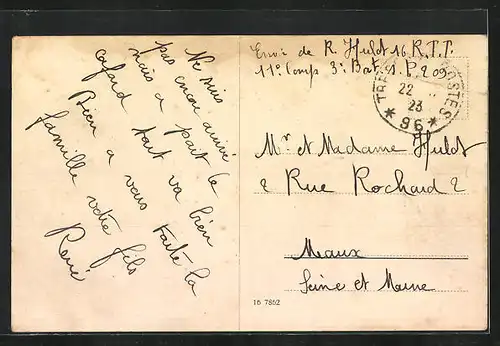 Ne suis
pas encor arrivé
mais a part le
cafard tout va bien
Bien a vous toute la
famille votre fils
René
Envoi de R. Huldt 16 R.T.T.
11e Comp 3e Bat. S.P. 209
TRE POSTES
22
23
* 96 *
Mr et Madame Huldt
2 Rue Rochard 2
Meaux
Seine et Marne
16 7852